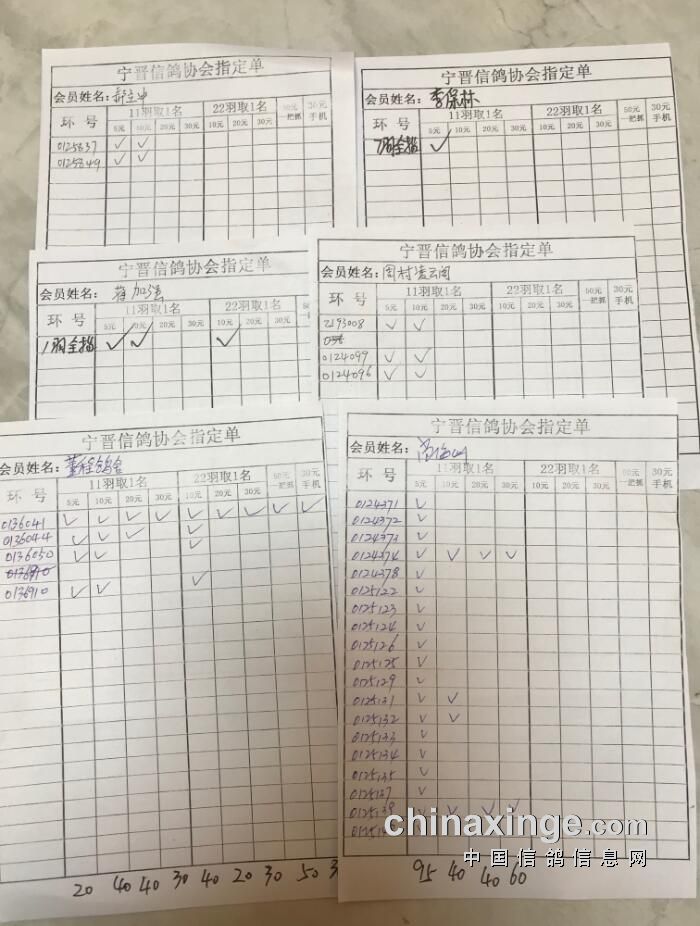 宁晋信鸽协会指定单
会员姓名:
环 号 11羽取1名 22羽取1名 50元 30元
5元 10元 20元 30元 10元 20元 30元 一把抓 手机
0125837 ✓ ✓
0125849 ✓ ✓
宁晋信鸽协会指定单
会员姓名: 李保林
环 号 11羽取1名 22羽取1名 50元 30元
5元 10元 20元 30元 10元 20元 30元 一把抓 手机
✓
宁晋信鸽协会指定单
会员姓名: 蒋加强
环 号 11羽取1名 22羽取1名
5元 10元 20元 30元 10元 20元 30元
1羽全指 ✓ ✓ ✓
宁晋信鸽协会指定单
会员姓名: 周村凌云阁
环 号 11羽取1名 22羽取1名 50元 30元
5元 10元 20元 30元 10元 20元 30元 一把抓 手机
2193008 ✓ ✓
0124099 ✓ ✓
0124096 ✓ ✓
宁晋信鸽协会指定单
会员姓名:
环 号 11羽取1名 22羽取1名 50元 30元
5元 10元 20元 30元 10元 20元 30元 一把抓 手机
0136041 ✓ ✓ ✓ ✓ ✓ ✓ ✓ ✓ ✓
0136044 ✓ ✓ ✓ ✓
0136050 ✓ ✓ ✓
0136910 ✓ ✓ ✓
20 40 40 30 40 20 30 50
宁晋信鸽协会指定单
会员姓名:
环 号 11羽取1名 22羽取1名 50元 30元
5元 10元 20元 30元 10元 20元 30元 一把抓 手机
0124371 ✓
0124372 ✓
0124373 ✓
0124374 ✓ ✓ ✓ ✓
0124378 ✓
0125122 ✓
0125123 ✓
0125124 ✓
0125126 ✓
0125125 ✓
0125129 ✓
0125131 ✓ ✓
0125132 ✓ ✓
0125133 ✓
0125134 ✓
0125135 ✓
0125137 ✓
0125138 ✓ ✓ ✓ ✓
95 40 40 60
chinaxinge.com
中国信鸽信息网